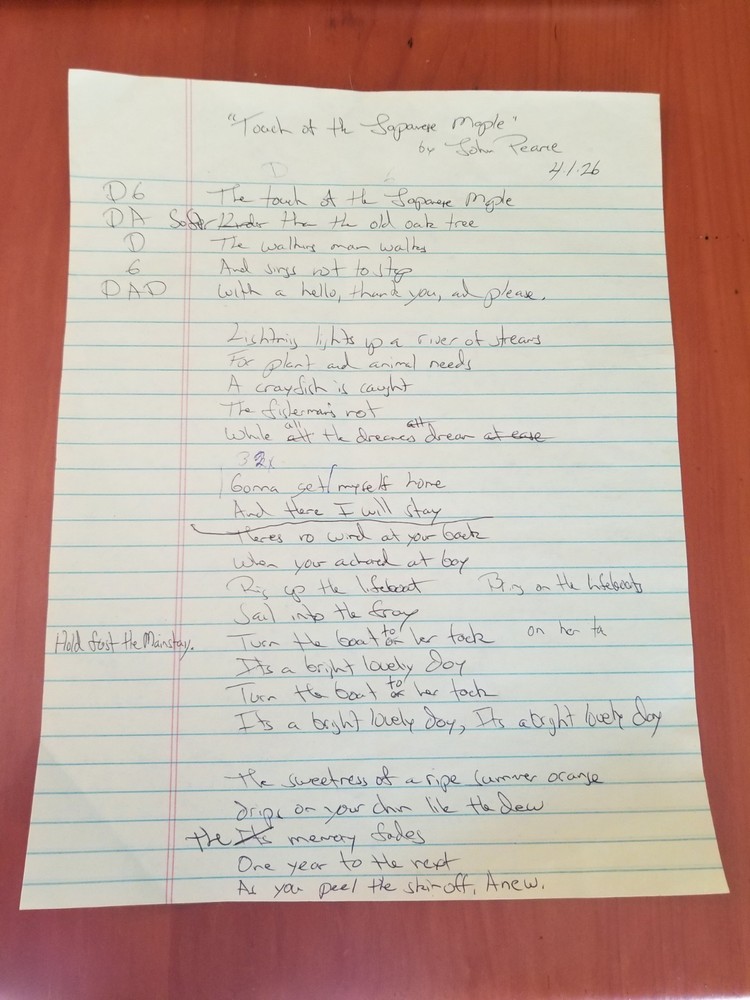 "Touch of the Japanese Maple"
by John Pearce
4.1.26
D G The touch of the Japanese Maple
D A Softer Under than the old oak tree
D The walking man walks
G And sings not to stop
D A D With a hello, thank you, and please.
Lightning lights up a river of streams
For plant and animal needs
A crayfish is caught
The fisherman's not
While all the dreamers all dream at ease
3 2x
Gonna get myself home
And there I will stay
Theres no wind at your back
When your achored at bay
Rig up the lifeboat Bring on the lifeboats
Sail into the fray
Hold fast the Mainstay. Turn the boat to on her tack on her ta
Its a bright lovely day
Turn the boat to on her tack
Its a bright lovely day, Its a bright lovely day
The sweetness of a ripe summer orange
Drips on your chin like the dew
the Its memory fades
One year to the next
As you peel the skin off, Anew.